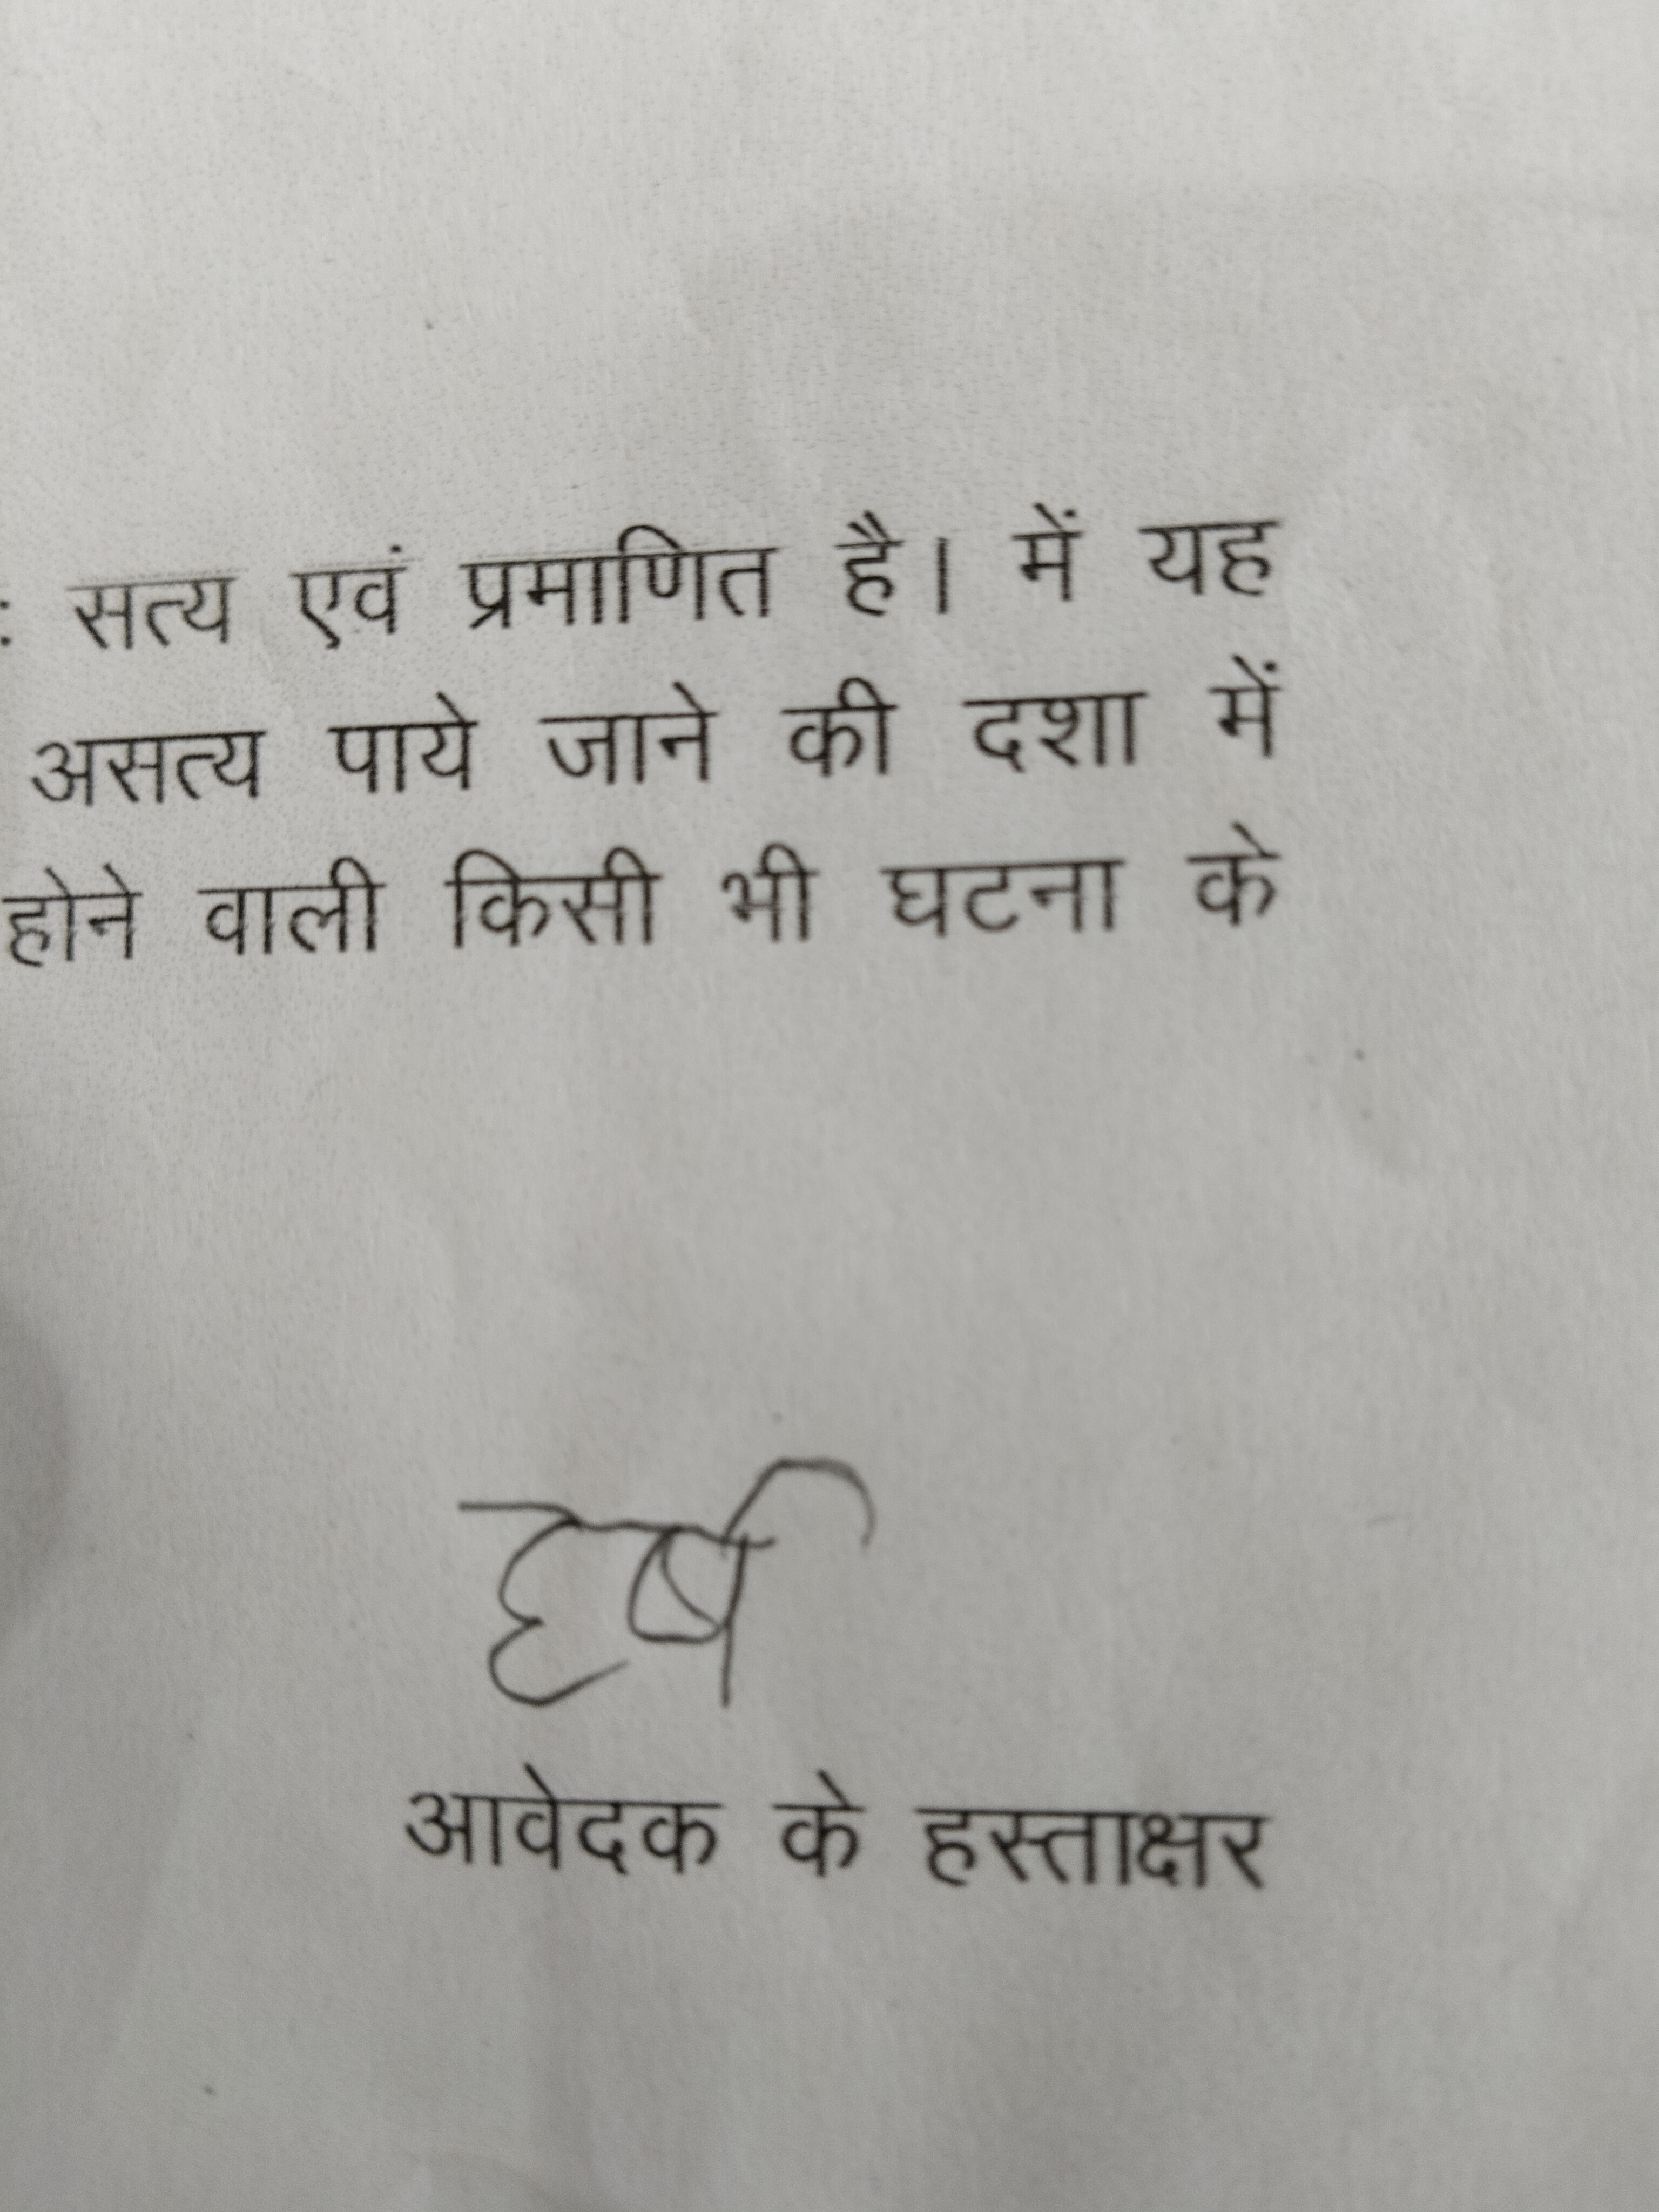 : सत्य एवं प्रमाणित है। में यह
असत्य पाये जाने की दशा में
होने वाली किसी भी घटना के
हर्ष
आवेदक के हस्ताक्षर